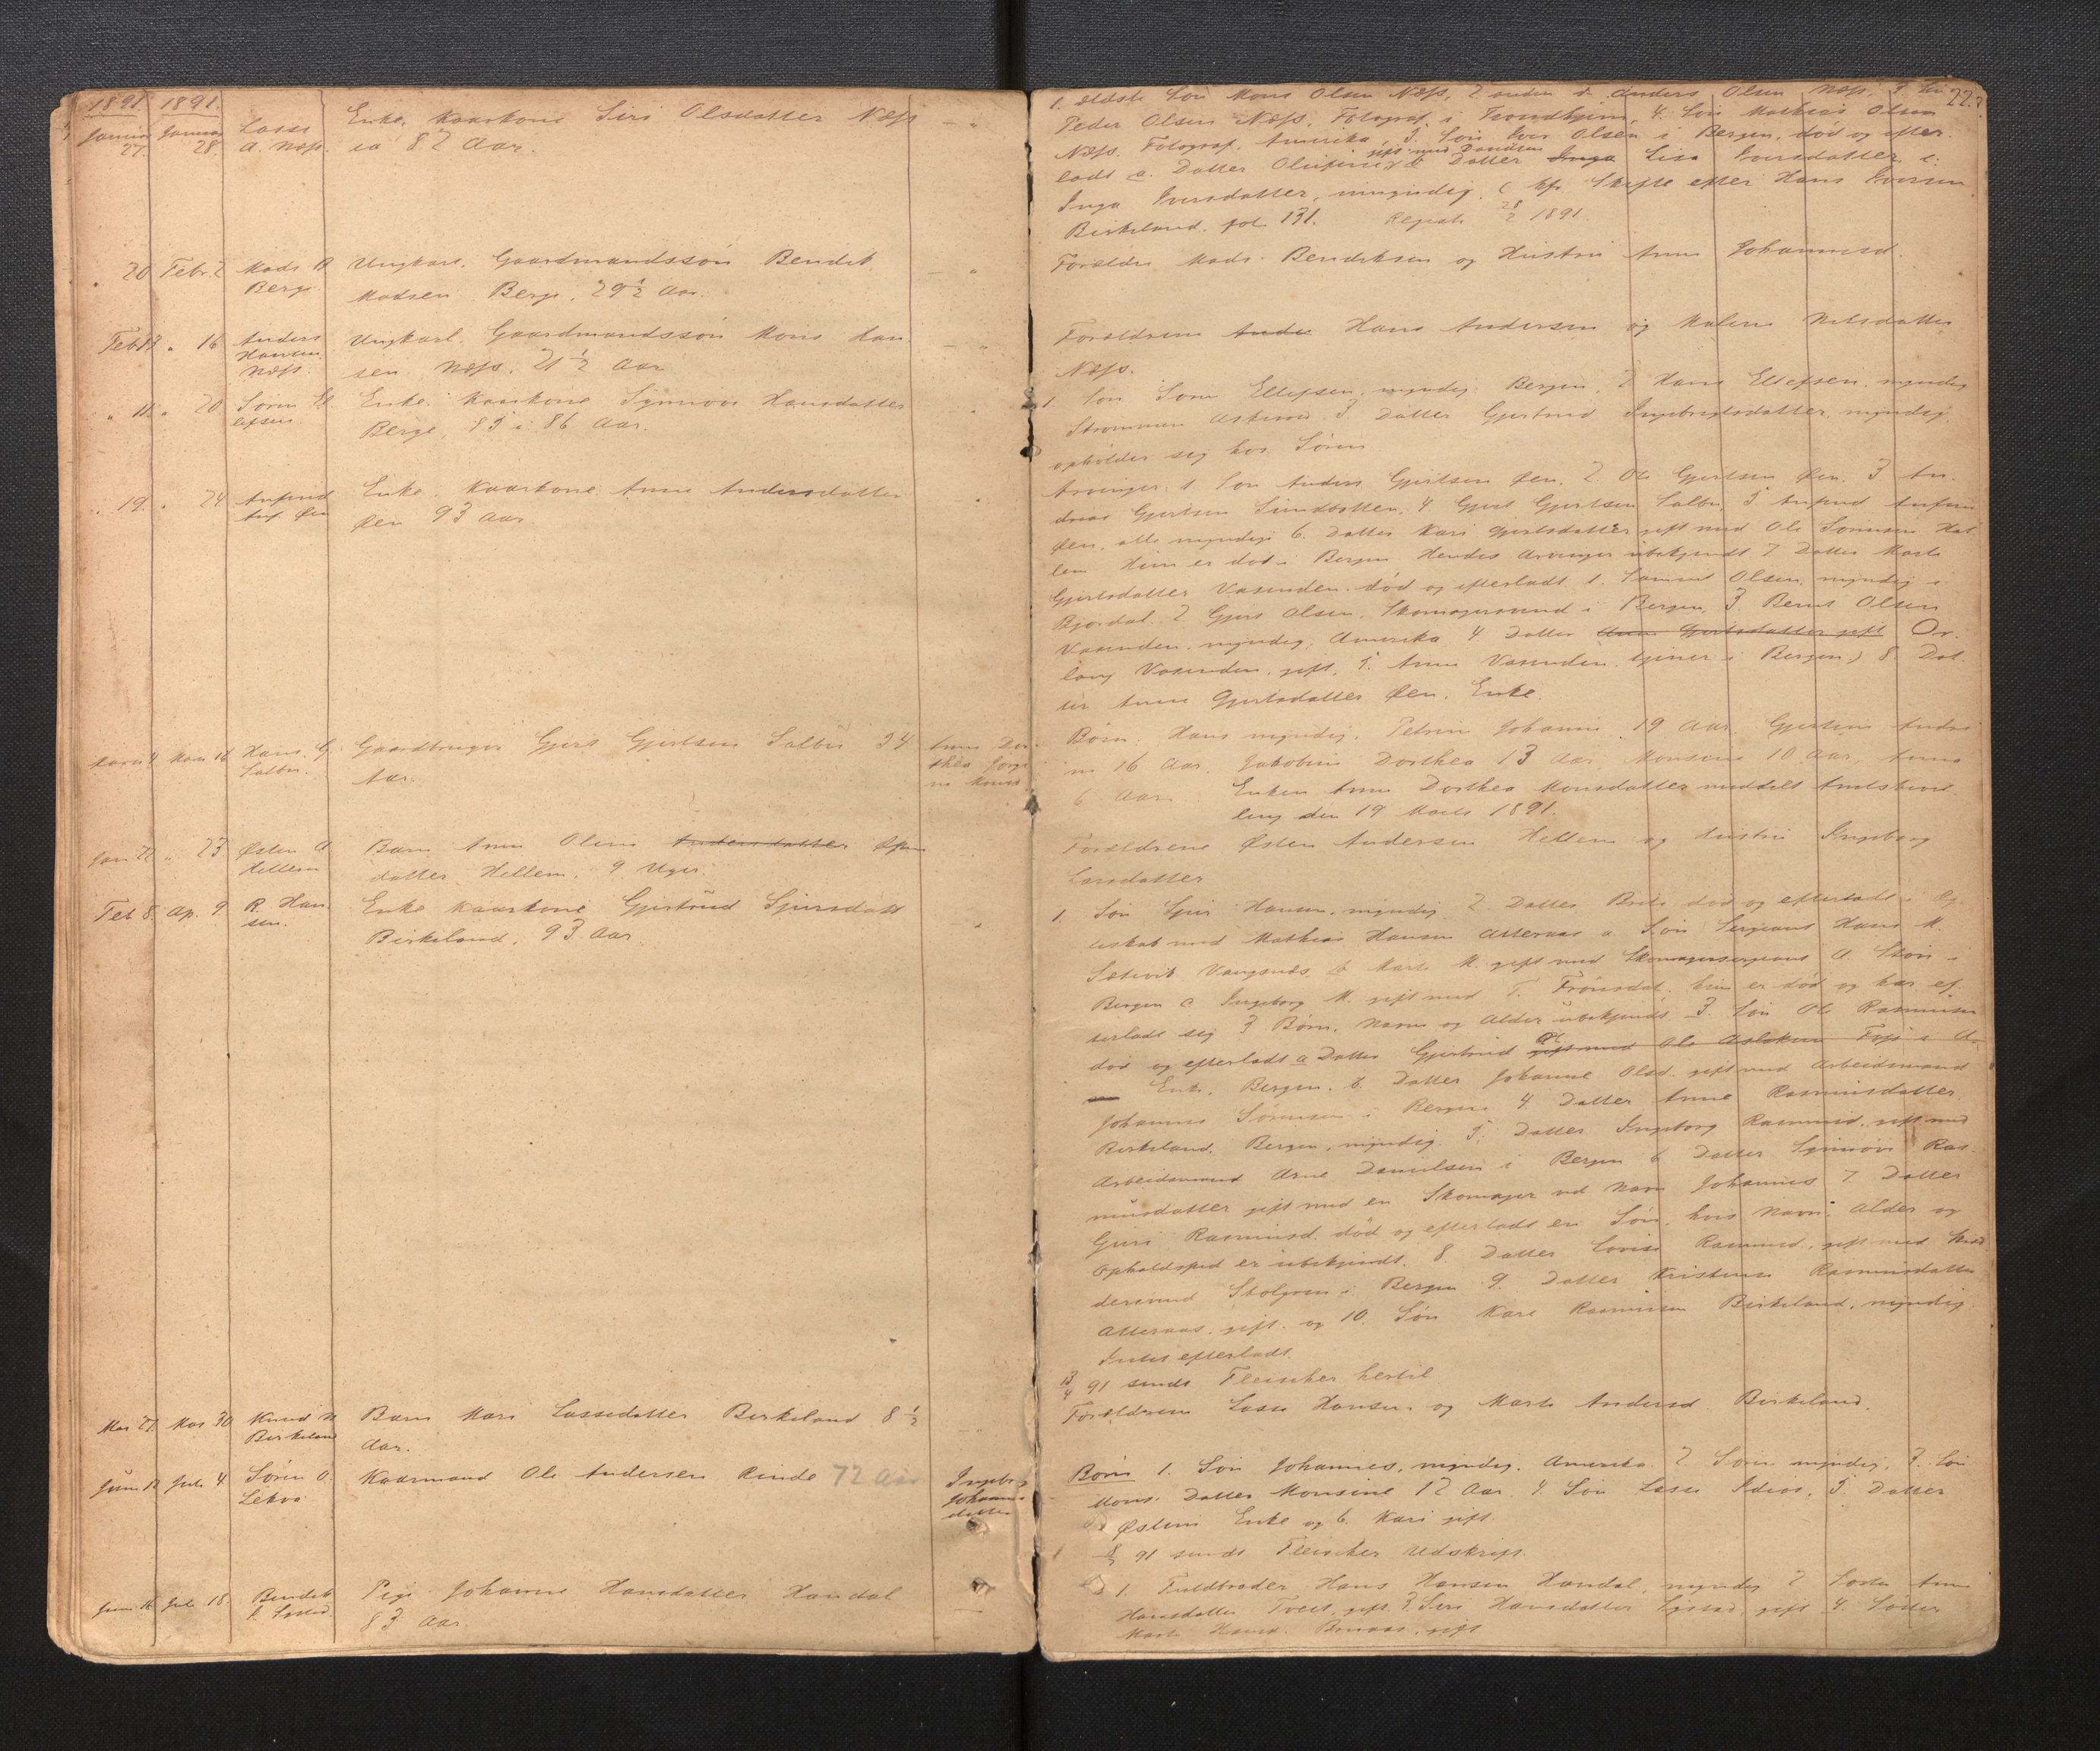 1891 1891.
Januar Januar Lasse Enke, Kaarkone Siri Olsdatter Næss — "
27. 28. A. Næss. ca 82 Aar.
" 20 Febr. 2 Mads B Ungkarl, Gaardmandssøn Bendik — "
Berge Madsen Berge, 29 1/2 Aar.
Feb 13 " 16 Anders Ungkarl, Gaardmandssøn Mons Han
Hansen Næss. sen Næss, 21 1/2 Aar
" 11 " 20 Søren El Enke, Kaarkone Synnøve Hansdatter
lefsen Berge, 85 i 86 Aar.
" 19. " 24 Anfind Enke, Kaarkone Anne Andersdatter
Anf. Øen Øen 93 Aar
Mars 4 Mars 16 Hans G. Gaardbruger Gjert Gjertsen Salbu 54 Anne Dor
Salbu. Aar. thea
Jan 22 " 23 Østen A Barn Anne Oline Andersdatter
Hellem datter Hellem, 9 Uger.
Feb 8. Ap. 9 R. Han Enke Kaarkone Gjertrud Sjursdatt
sen. Birkeland, 93 Aar
Mar 27 Mar 30 Knud N Barn Mari Lassedatter Birkeland 8 1/2
Birkeland Aar.
Juni 12 Juli 4 Søren O. Kaarmand Ole Andersen Rinde 72 Aar Ingebor
Lekva Johannes
datter
Juni 16 Juli 18. Bendik Pige Johanne Hansdatter Haudal
83 Aar. —
223
1. ældste Søn Mons Olsen Næss, 2 anden do Anders Olsen Næss, 3 Søn
Peder Olsen Næss, Fotograf i Trondhjem, 4. Søn Mathias Olsen
Næss, Fotograf, Amerika, 5. Søn Iver Olsen i Bergen, død og efter
ladt a. Datter Olufine gift med b Datter Inga Lisa Iversdatter c.
Inga Iversdatter, umyndig, (kfr Skifte efter Hans Iversen
Birkeland, fol 131. Regist. 28/2 1891.
Forældre Mads Bendiksen og Hustru Anne Johannesd.
Forældrene Ande Hans Andersen og Malene Nilsdatter
Næss.
1. Søn Søren Ellefsen, myndig, Bergen, 2 Hans Ellefsen, myndig
Strømmen Askvoll 3. Datter Gjertrud Ingebrigtsdatter, myndig
opholder sig hos Søren
Arvinger. 1. Søn Anders Gjertsen Øen, 2. Ole Gjertsen Øen, 3 An
dreas Gjertsen 4. Gjert Gjertsen Salbu, 5 Anfind Anfin
Øen, alle myndige 6. Datter Kari Gjertsdatter gift med Ole Sørensen Hel
lem Hun er død i Bergen Hendes Arvinger ubekjendt 7 Datter Marte
Gjertsdatter Vasenden, død og efterladt 1. Samuel Olsen, myndig i
Bjordal, 2. Gjert Olsen, Skomagersvend i Bergen, 3. Bernt Olsen
Vasenden, myndig, Amerika 4. Datter Anne Gjertsdatter gift Or
laug Vasenden, gift, 5. Anne Vasenden, tjener i Bergen) 8. Dat
ter Anne Gjertsdatter Øen, Enke.
Børn: Hans myndig, Petrine Johanne 19 Aar, Gjertine Andre
ne 16 Aar, Jakobine Dorthea 13 Aar, Monsine 10 Aar, Anne
6 Aar. Enken Anne Dorthea Monsdatter meddelt Amtsbevil
ling den 19 Marts 1891.
Forældrene Østen Andersen Hellem og Hustru Ingeborg
Larsdatter
1. Søn Sjur Hansen, myndig 2 Datter Brite død og efterladt i Æg
teskab med Mathias Hansen Atteraas a Søn Sergeant Hans M.
Sætevik Vangsnæs, b Marte M. gift med Skomagersergeant A. Steen i
Bergen c Ingeborg M. gift med T. Frønsdal, hun er død og har ef
terladt sig 3 Børn, Navn og Alder ubekjendt. 3. Søn Ole Rasmussen
død og efterladt a Datter Gjertrud gift med Ole Aslaksen i A
Enke, Bergen, b. Datter Johanne Olsd. gift med Arbeidsmand
Johannes Sørensen i Bergen 4 Datter Anne Rasmusdatter
Birkeland, Bergen, myndig 5: Datter Ingeborg Rasmusd. gift med
Arbeidsmand Arne Danielsen i Bergen 6 Datter Synnøve Ras
musdatter gift med en Skomager ved Navn Johannes 7 Datter
Guri Rasmusd. død og efterladt en Søn, hvis Navn, Alder og
Opholdsted er ubekjendt, 8 Datter Lovise Rasmusd., gift med Skræd
dersvend i Bergen 9. Datter Kristense Rasmusdatter
Atteraas, gift, og 10. Søn Kare Rasmussen Birkeland, myndig.
Intet efterladt.
13/4 91 sendt Fleischer hertil
Forældrene Lasse Hansen og Marte Andersd. Birkeland.
Børn 1. Søn Johannes, myndig, Amerika 2 Søren myndig, 3. Søn
Mons. Datter Monsine 12 Aar, 4. Søn Lasse 5. Datter
Østine Enke og 6. Kari gift.
8/7 91 sendt Fleischer Udskrift.
1. Fuldbroder Hans Hansen Haudal, myndig 2 Søster Anne
Hansdatter Tveit, gift, 3. Siri Hansdatter gift 4 Søster
Marte Hansd. gift